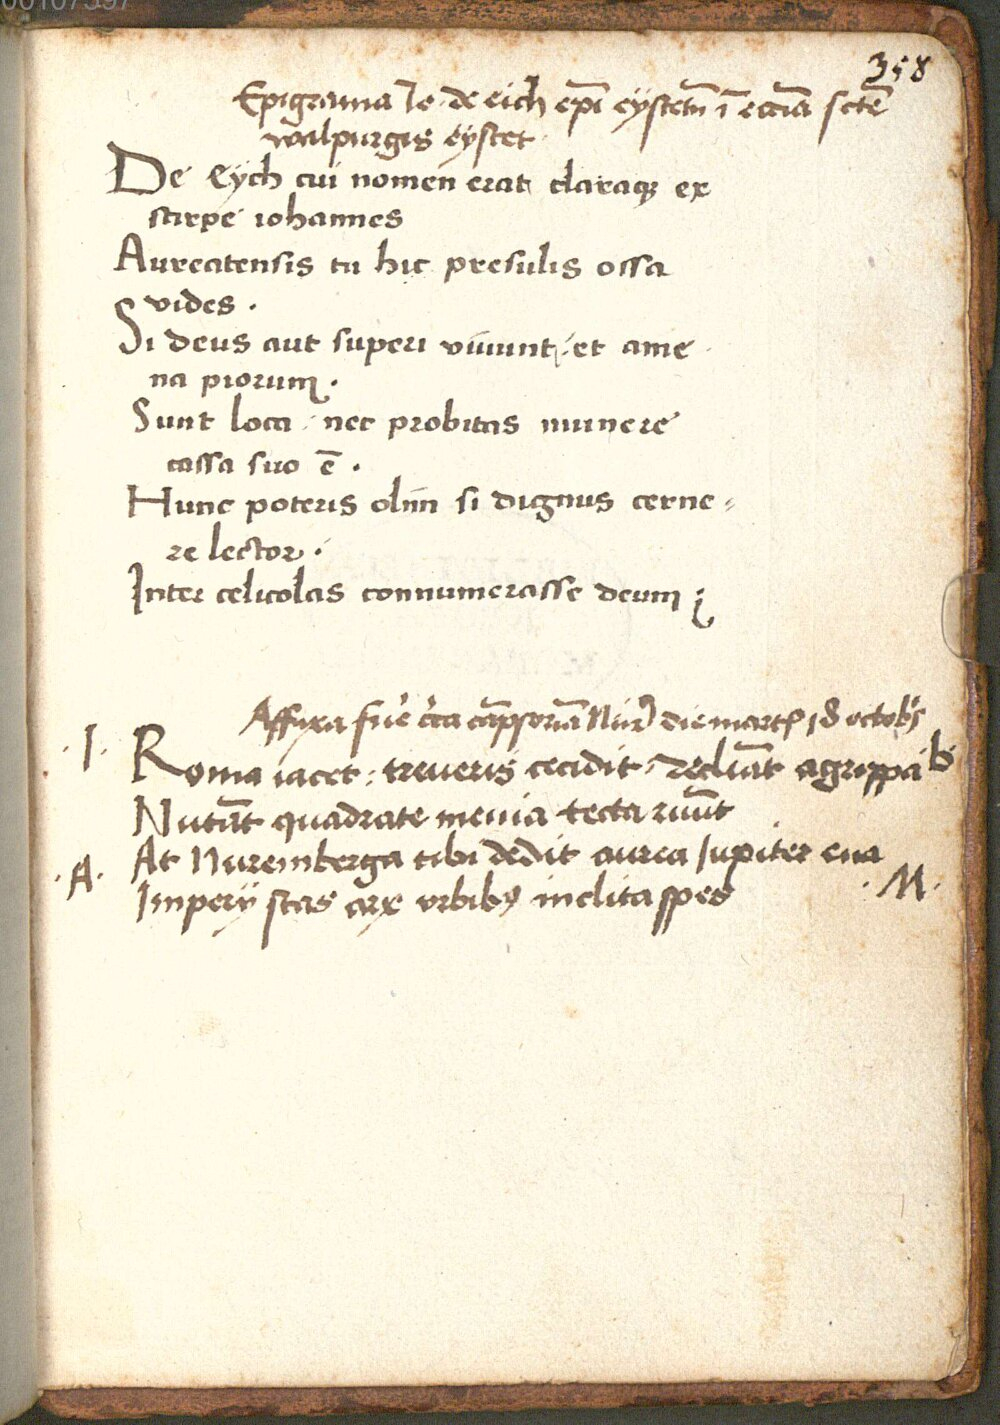 358
Epigrama Io. de eich epi eystetn̄ ī eccīa scte
walpurgis eystet
De Eych cui nomen erat claraq; ex
stirpe iohannes
Aureatensis tu hic presulis ossa
vides .
Si deus aut superi viuunt et ame
na piorum .
Sunt loca nec probitas munere
cassa suo ē .
Hunc poteris olim si dignus cerne=
re lector .
Inter celicolas connumerasse deum ;
Affixa
.I. Roma iacet : treueris cecidit . agrippa .b.
Nutāt quadrate menia tecta ruūt
At Nuremberga tibi dedit aurea Iupiter eua
.A. Impery stas arx vrbibꝫ inclita spes .M.